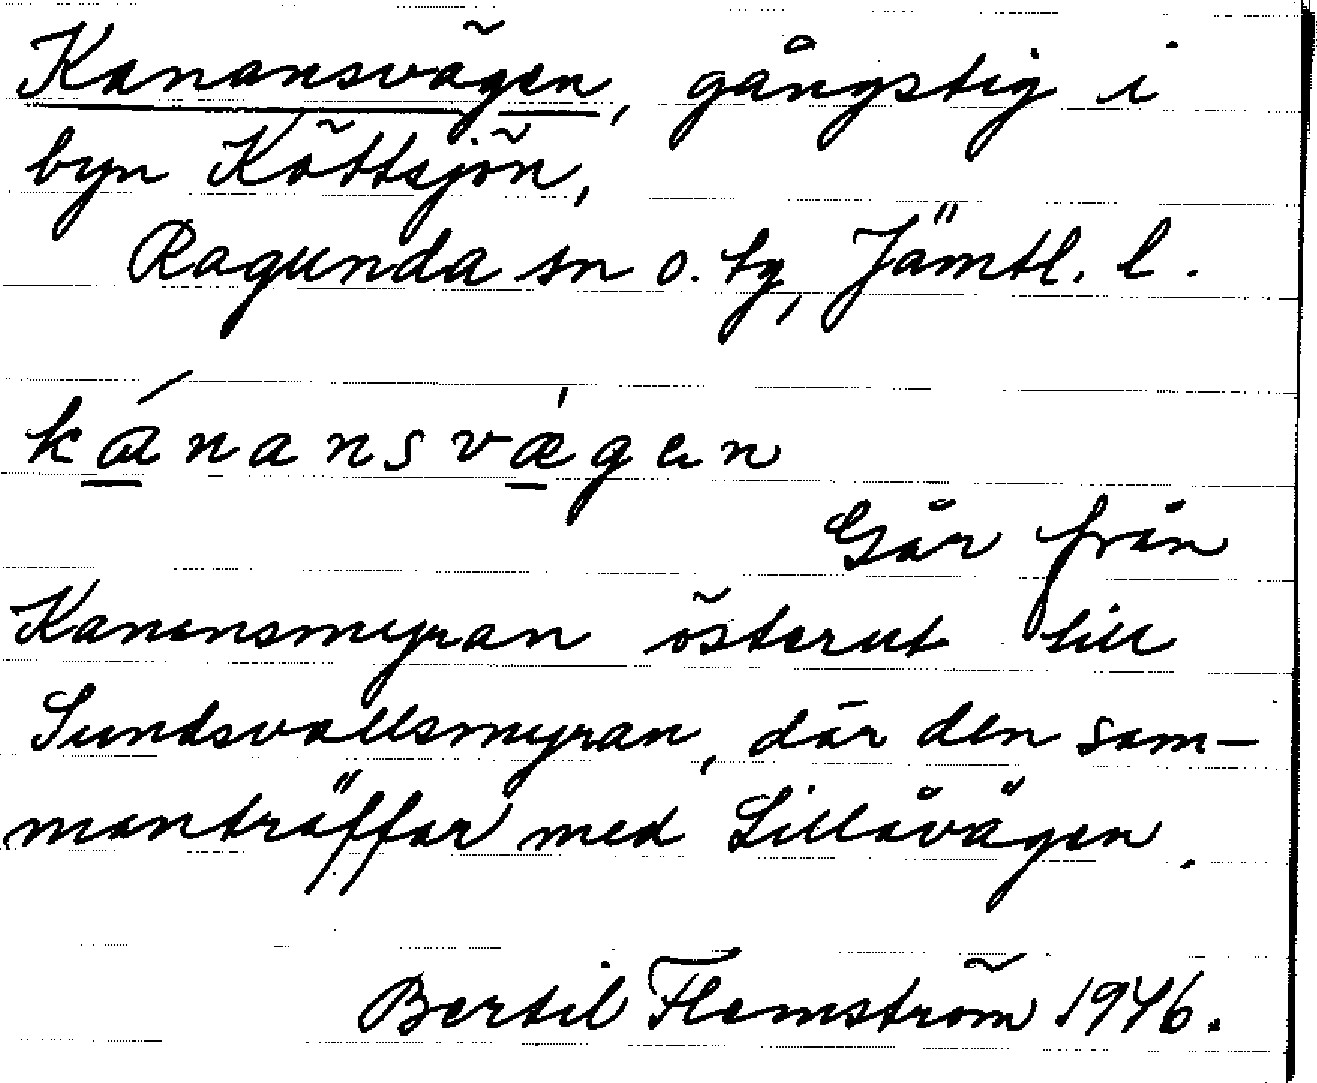 Kanansvägen, gångstig i
byn Köttsjön,
Ragunda sn o. tg, Jämtl. l.
kánansvǽgen
Går från
Kanansmyran österut till
Sundsvallsmyran, där den sam-
manträffar med Lillåvägen.
Bertil Flemström 1946.